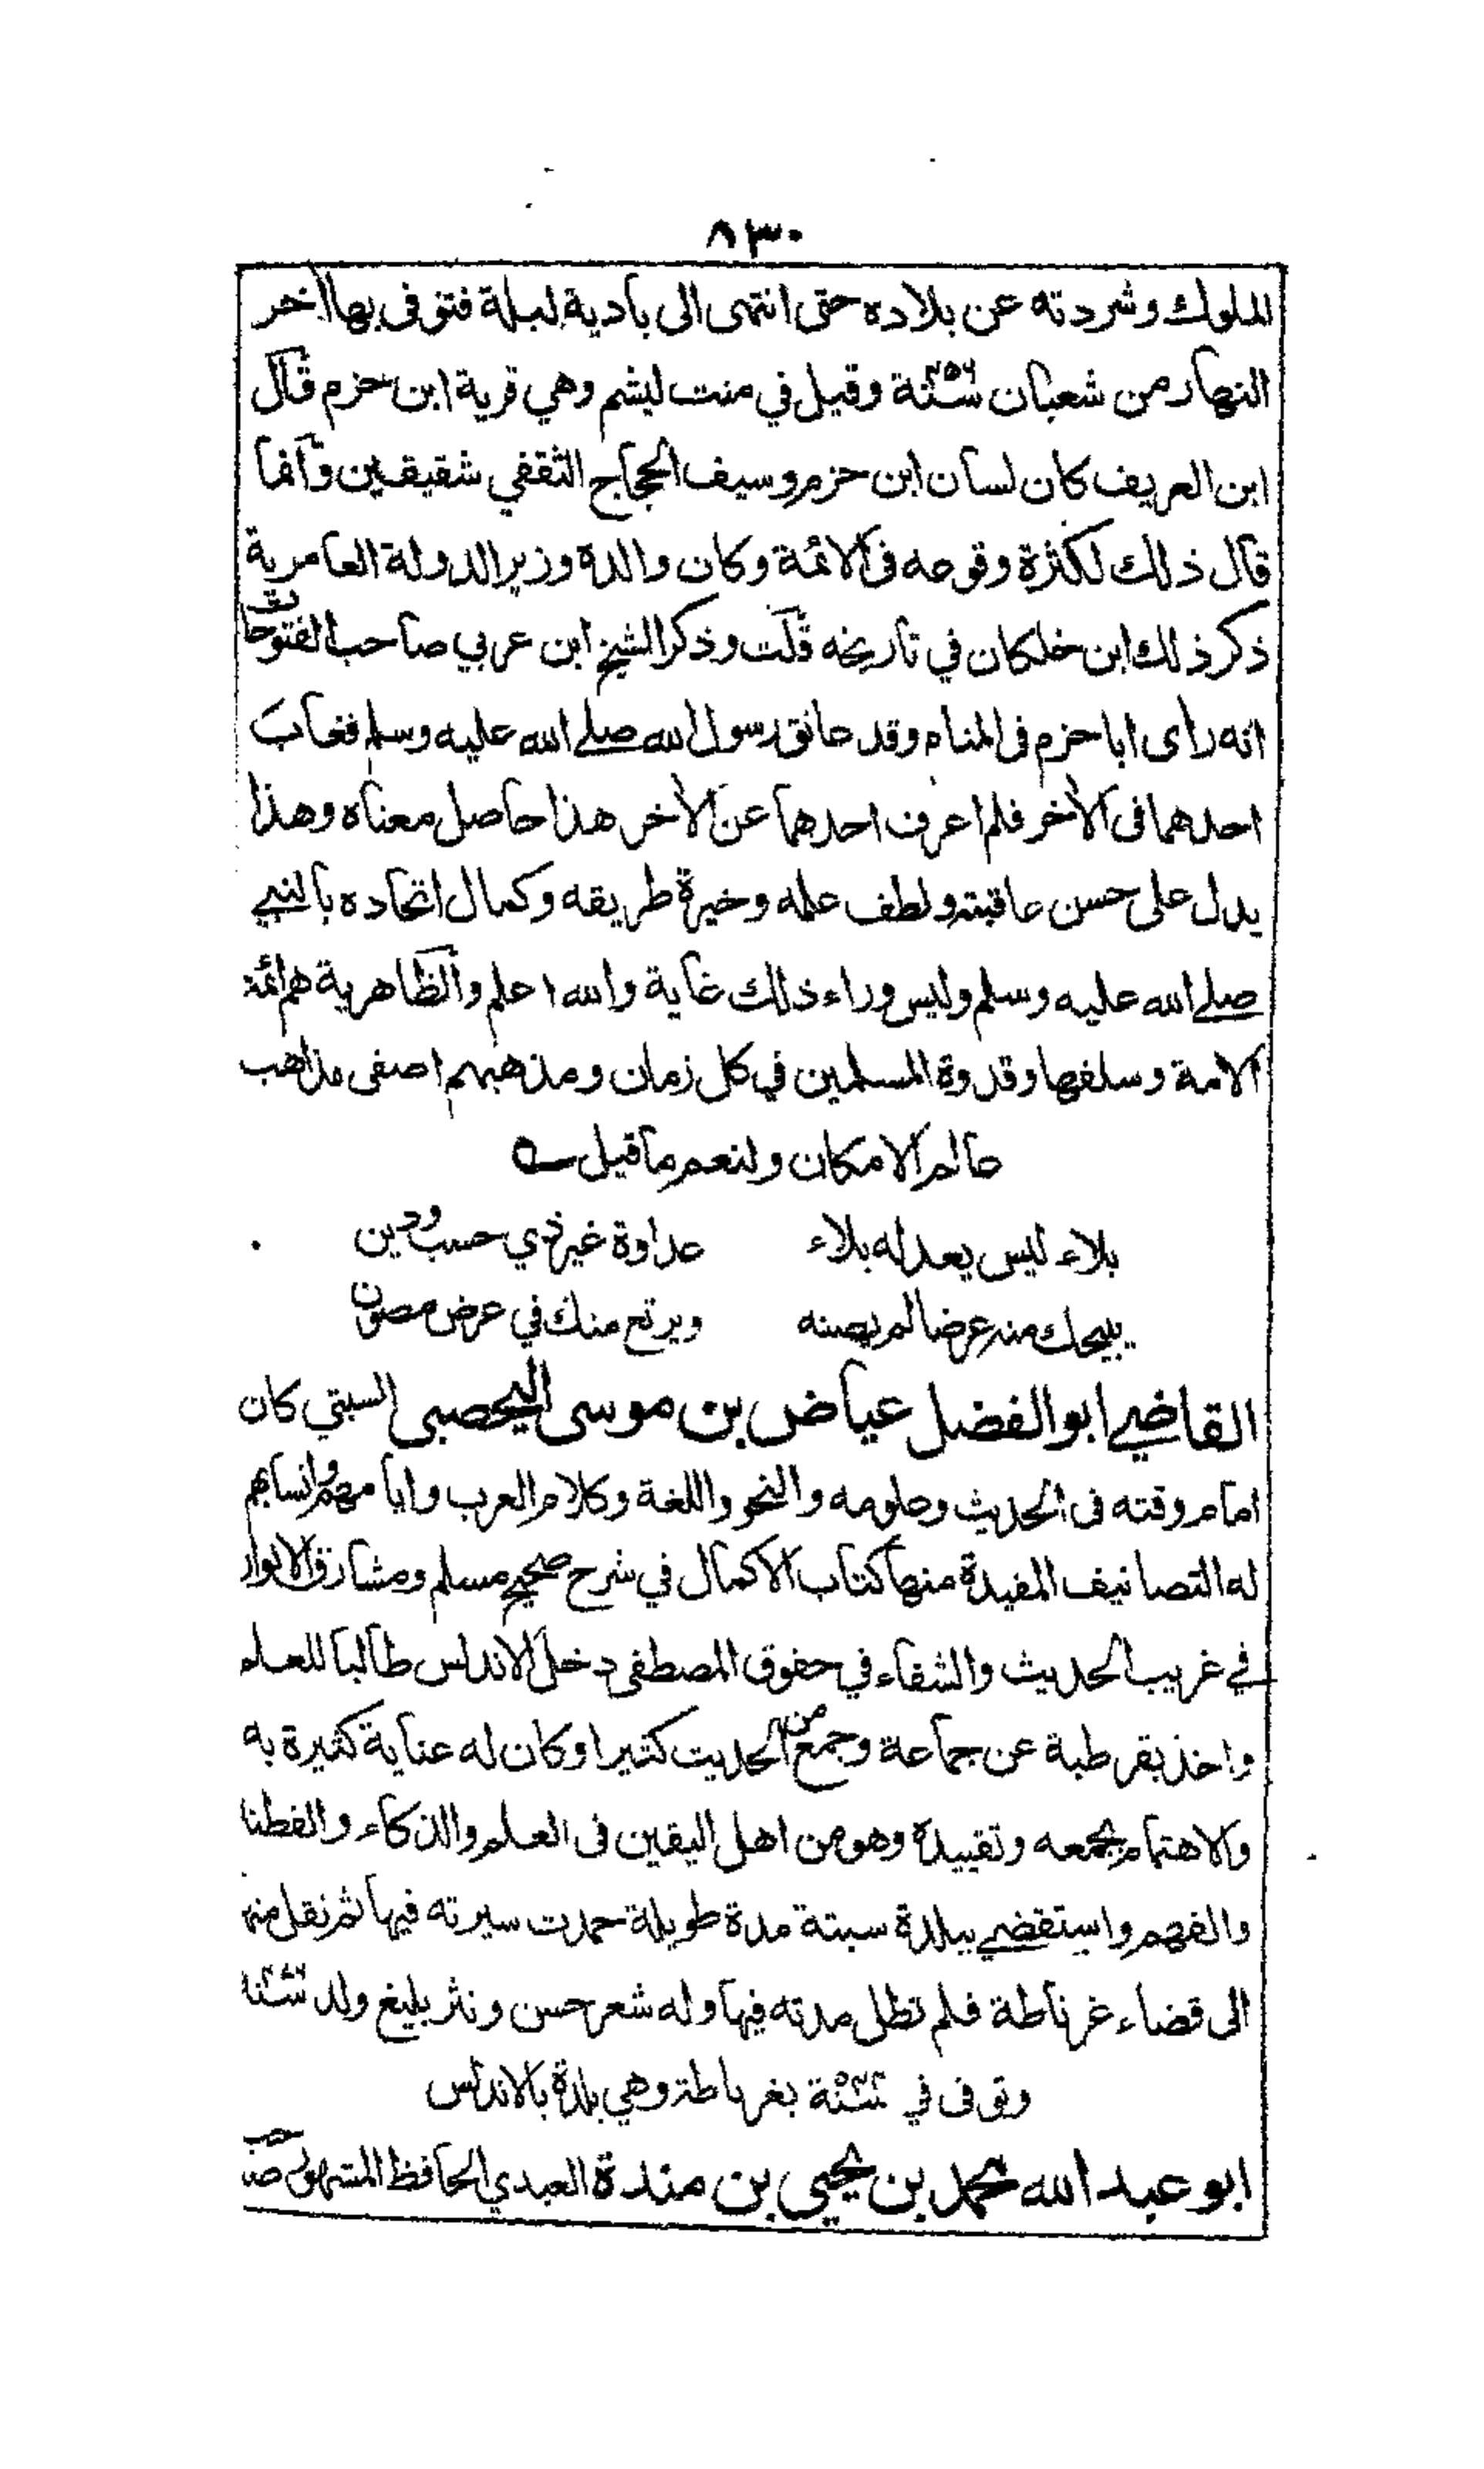 ٨٣٠
الملوك وشردته عن بلاده حتى انتهى الى بادية لبلة فتوفى بها اخر
النهار من شعبان سنة ٤٥٦ وقيل في منت ليشم وهي قرية ابن حزم قال
ابن العريف كان لسان ابن حزم وسيف الحجاج الثقفي شقيقين وانما
قال ذلك لكثرة وقوعه فى الائمة وكان والده وزير الدولة العامرية
ذكر ذلك ابن خلكان في تاريخه قلت وذكر الشيخ ابن عربي صاحب الفتوحات
انه راى ابا حزم فى المنام وقد عانق رسول الله صلے الله عليه وسلم فغاب
احدهما فى الاخر فلم اعرف احدهما عن الاخر هذا حاصل معناه وهذا
يدل على حسن عاقبته ولطف علمه وخيرة طريقه وكمال اتحاده بالنبي
صلے الله عليه وسلم وليس وراء ذلك غاية والله اعلم والظاهرية هم ائمة
الامة وسلفها وقدوة المسلمين في كل زمان ومذهبهم اصفى مذاهب
عالم الامكان ولنعم ما قيل
بلاء ليس يعدله بلاء عداوة غير ذي حسب ودين
يبيحك منه عرضا لم يصنه ويرتع منك في عرض مصون
القاضي ابو الفضل عياض بن موسى اليحصبى السبتي كان
امام وقته فى الحديث وعلومه والنحو واللغة وكلام العرب وايامهم وانسابهم
له التصانيف المفيدة منها كتاب الاكمال في شرح صحيح مسلم ومشارق الانوار
في غريب الحديث والشفاء في حقوق المصطفى دخل الاندلس طالبا للعلم
واخذ بقرطبة عن جماعة وجمع من الحديث كثيرا وكان له عناية كثيرة به
والاهتمام بجمعه وتقييده وهو من اهل اليقين فى العلم والذكاء والفطنا
والفهم واستقضي ببلدة سبتة مدة طويلة حمدت سيرته فيها ثم نقل منها
الى قضاء غرناطة فلم تطل مدته فيها وله شعر حسن ونثر بليغ ولد
وتوفى في سنة بغرناطة وهي بلدة بالاندلس
ابو عبد الله محمد بن يحيى بن مندة العبدي الحافظ المشهور صاحب